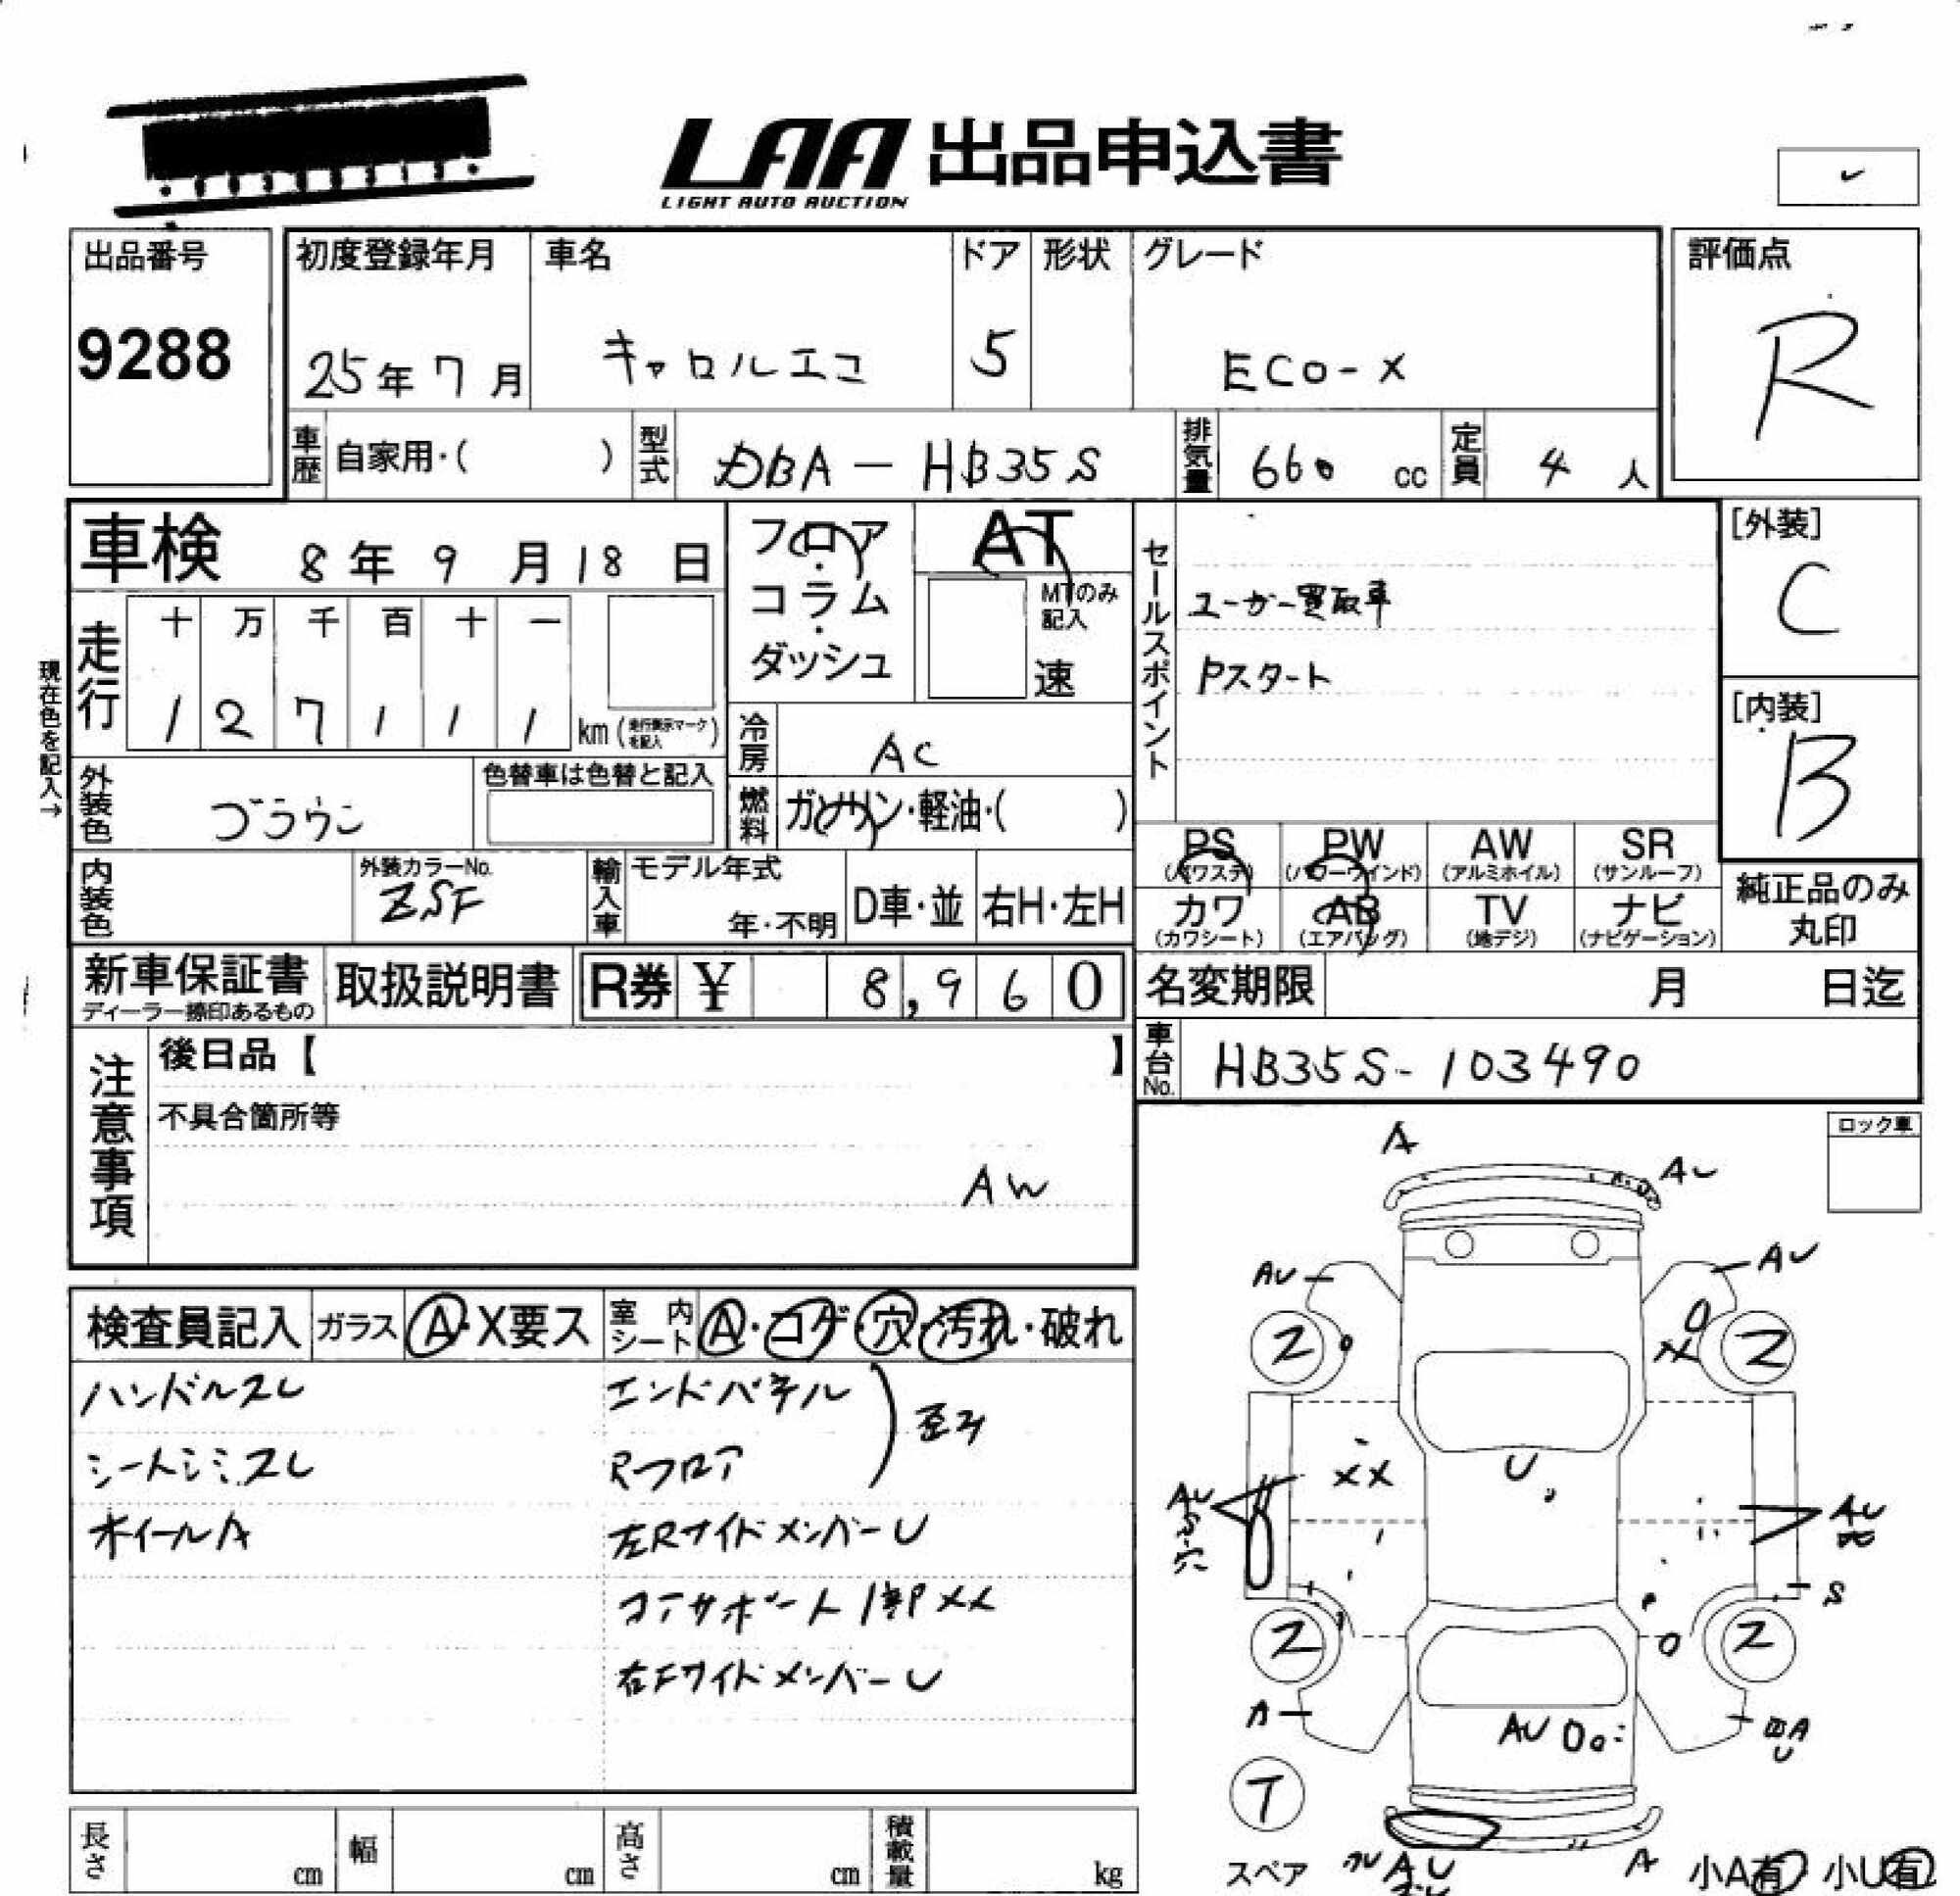 LAA 出品申込書
LIGHT AUTO AUCTION
出品番号
9288
初度登録年月
25年7月
車名
キャロルエコ
ドア
5
形状
グレード
ECO-X
評価点
R
車歴 自家用・( )
型式 DBA-HB35S
排気量 660 cc
定員 4 人
車検 8年9月18日
フロア・コラム・ダッシュ
AT
MTのみ記入
速
セールスポイント
ユーザー買取車
Pスタート
[外装]
C
[内装]
B
現在色を記入→
走行
十 万 千 百 十 一
1 2 7 1 1 1 km (走行表示マークを記入)
冷房 AC
燃料 ガソリン・軽油・( )
外装色 ブラウン
色替車は色替と記入
内装色
外装カラーNo.
ZSF
輸入車 モデル年式
年・不明
D車・並
右H・左H
PS (パワステ)
PW (パワーウインド)
AW (アルミホイル)
SR (サンルーフ)
カワ (カワシート)
AB (エアバッグ)
TV (地デジ)
ナビ (ナビゲーション)
純正品のみ丸印
新車保証書
ディーラー捺印あるもの
取扱説明書
R券 ¥ 8,960
名変期限 月 日迄
車台No. HB35S-103490
注意事項
後日品【 】
不具合箇所等
AW
ロック車
検査員記入
ガラス A・X要ス
室内シート A・コゲ・穴・汚れ・破れ
ハンドルスレ
エンドパネル
歪み
シートシミ.スレ
Rフロア
ホイールA
左Rサイドメンバー U
コアサポート1部XX
右Fサイドメンバー U
A
AU
AU
AU
2
2
XX
XX
U
AU
穴
AU
S
2
2
A
AU
T
スペア
AU
A
小A有 小U有
長さ cm
幅 cm
高さ cm
積載量 kg